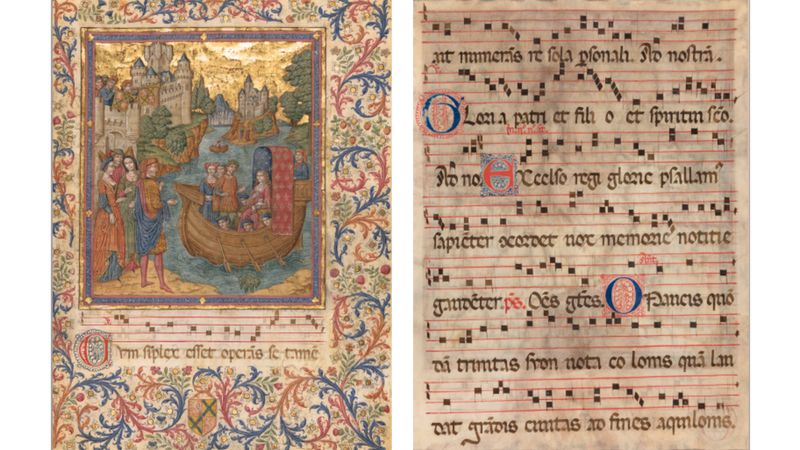 Cum siplex esset operās se tamē
aıt numerās re sola psonali. Ad nostrā.
Gloria patri et fili o et spiritui scō.
Ad no. Excelso regi glorie psallam
sapiēter ꝯcordet uox memorie notitie
gaudēter. ps. Oēs gētes. Ant. O Francis
dā trinitas fron nota co loms quā lau
dat grādis ciuitas ad fines aquiloms.